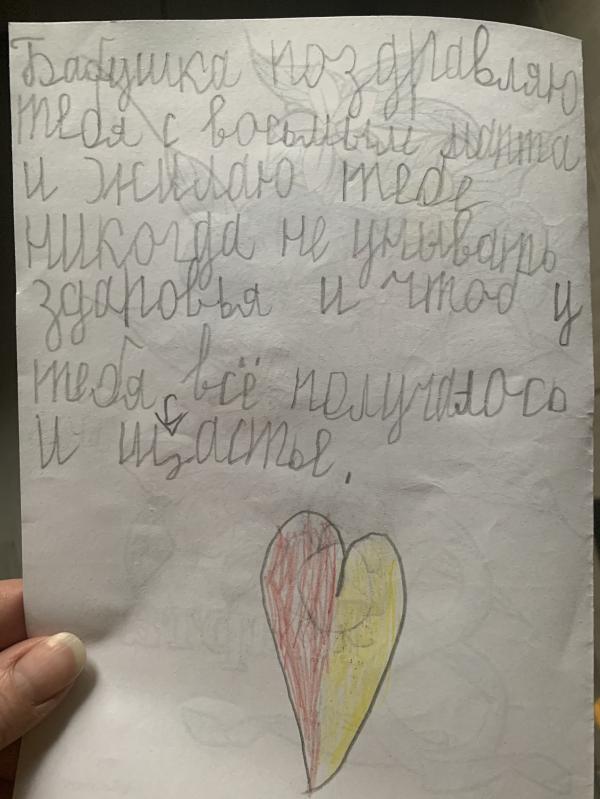 Бабушка поздравляю
тебя с восьмым марта
и жилаю тебе
никогда не унывать
здаровья и чтоб у
тебя всё получалось
и щастье.